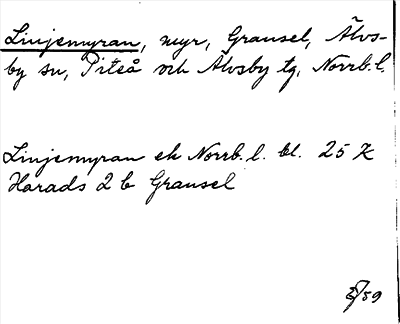 Linjemyran, myr, Gransel, Älvs-
by sn, Piteå och Älvsby tg, Norrb. l.
Linjemyran ek Norrb. l. bl. 25 K
Harads 2 b Gransel
/59